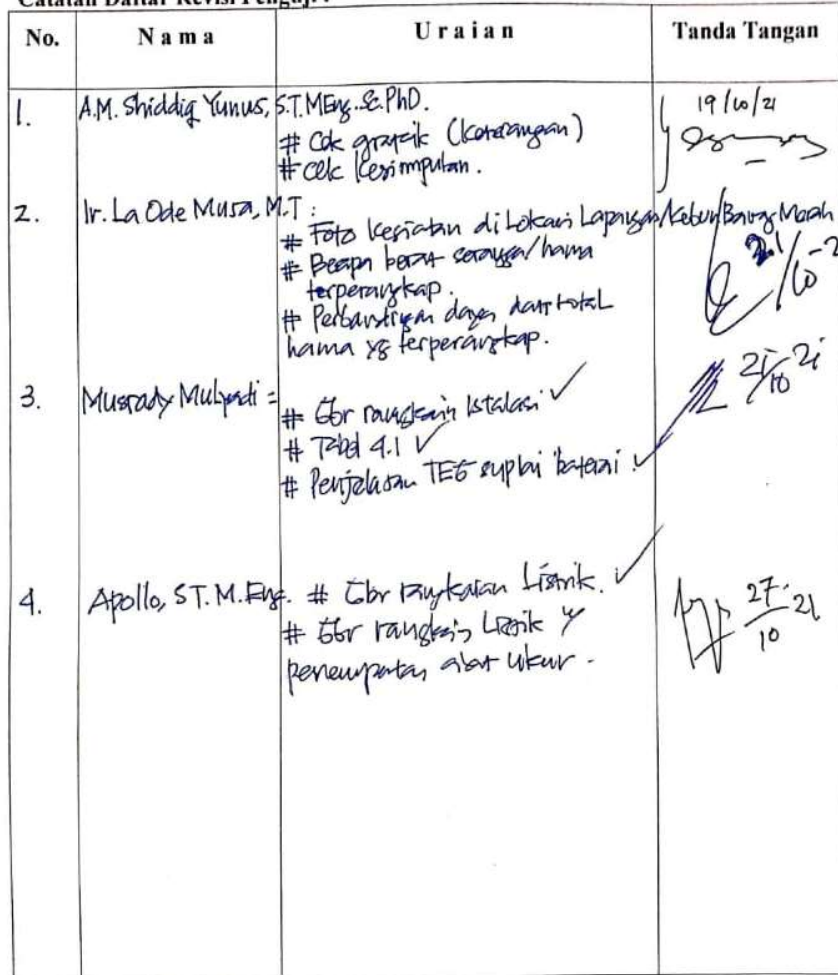 Catatan Daftar Revisi Penguji :
No. Nama Uraian Tanda Tangan
1. A.M. Shiddiq Yunus, S.T. MEng.Sc. PhD. 19/10/21
# Cek grafik (keterangan)
# cek kesimpulan.
2. Ir. La Ode Musa, M.T :
# Foto kegiatan di Lokasi Lapangan/Kebun Bawang Merah
# Berapa berat serangga/hama
terperangkap.
# Perbandingan daya dari total
hama yg terperangkap.
3. Musrady Mulyadi =
# Gbr rangkain Istalasi ✓
# Tabel 4.1 ✓
# Penjelasan TEG suplai baterai ✓
21/10 21
4. Apollo, ST. M.Eng. # Gbr rangkaian Listrik. ✓
# Gbr rangkain Listrik
penempatan alat ukur.
27/10 21